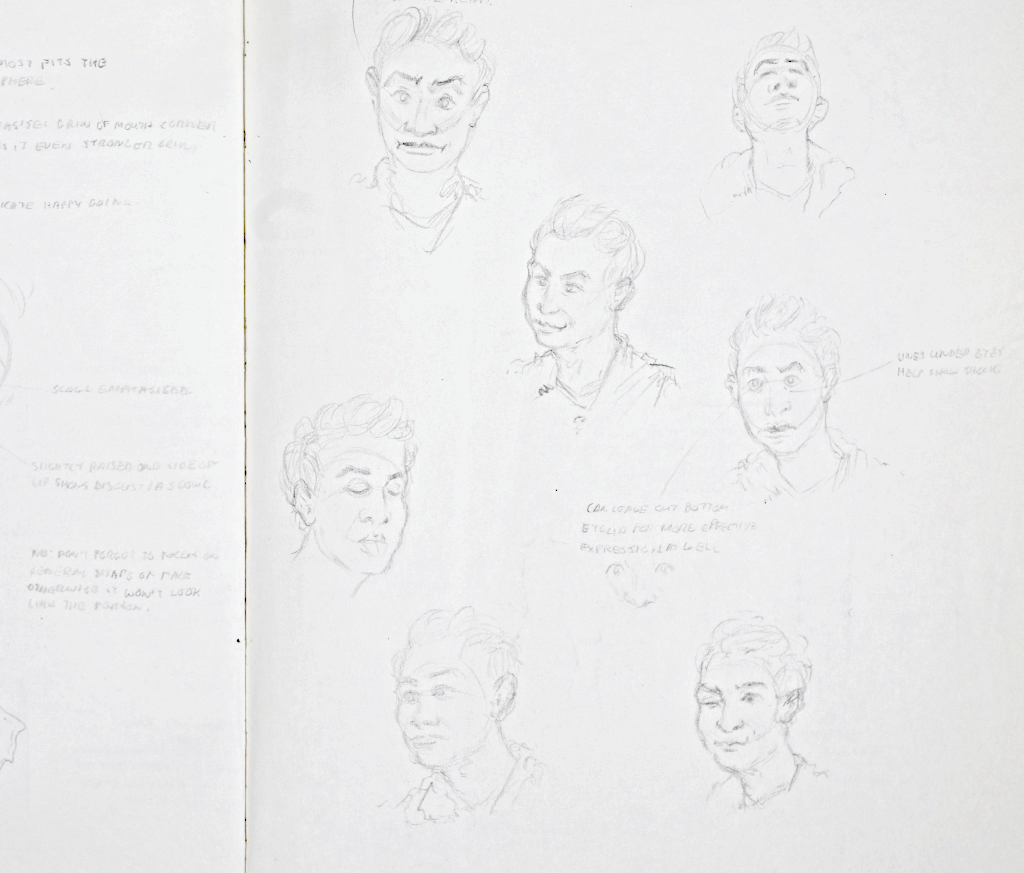 MOST FITS THE
SPHERE.
GRIN OF MOUTH CORNER
IT EVEN STRONGER GRIN.
HAPPY GOING
SCOWL EMPHASISED.
SLIGHTLY RAISED ONE SIDE OF
LIP SHOWS DISGUST / A SCOWL
NB: DON'T FORGET TO
GENERAL SHAPE OF FACE
OTHERWISE IT WON'T LOOK
LIKE THE PERSON.
LINES UNDER EYES
HELP SHOW
CAN LEAVE OUT BOTTOM
EYELID FOR MORE EFFECTIVE
EXPRESSION AS WELL